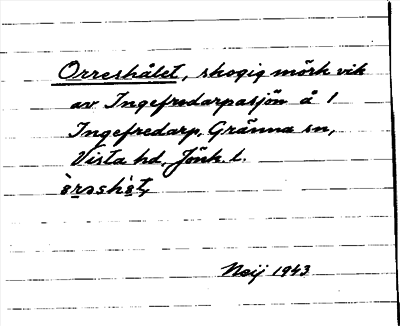 Orreshålet, skogig mörk vik
av Ingefredarpasjön å 1
Ingefredarp, Gränna sn,
Vista hd, Jönk. l.
Neij 1943